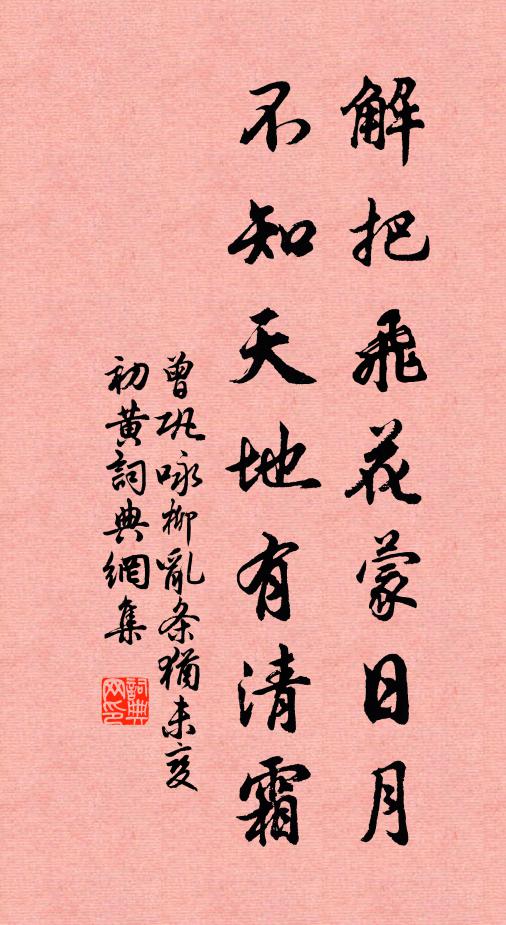 解把飛花蒙日月
不知天地有清霜
曾鞏咏柳亂条猶未変
初黄詞典網集
詞典網印